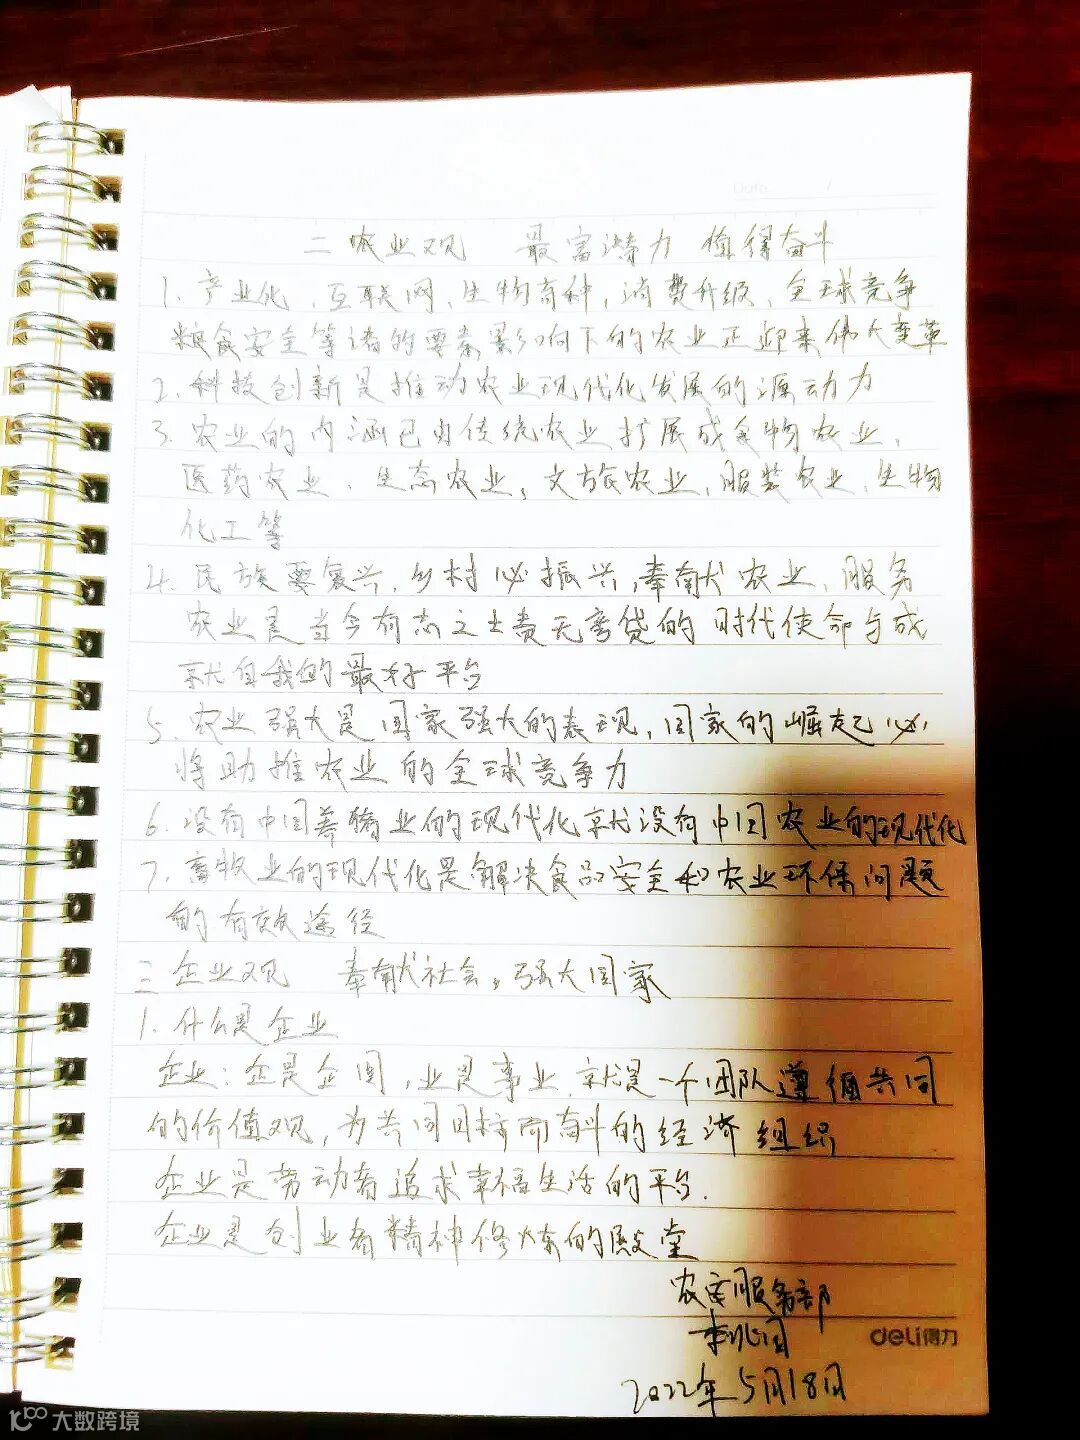 Date /
二 农业观 最富潜力 值得奋斗
1. 产业化、互联网、生物育种、消费升级、全球竞争
粮食安全等诸的要素影响下的农业正迎来伟大变革
2. 科技创新是推动农业现代化发展的源动力
3. 农业的内涵已由传统农业扩展成食物农业、
医药农业、生态农业、文旅农业、服装农业、生物
化工等
4. 民族要复兴,乡村必振兴,奉献农业、服务
农业是当今有志之士责无旁贷的时代使命与成
就自我的最好平台
5. 农业强大是国家强大的表现,国家的崛起必
将助推农业的全球竞争力
6. 没有中国养殖业的现代化就没有中国农业的现代化
7. 畜牧业的现代化是解决食品安全和农业环保问题
的有效途径
三 企业观 奉献社会,强大国家
1. 什么是企业
企业:企是企图,业是事业,就是一个团队遵循共同
的价值观,为共同目标而奋斗的经济组织
企业是劳动者追求幸福生活的平台.
企业是创业者精神修炼的殿堂
服务部
2022年5月18日
deli得力
大数跨境